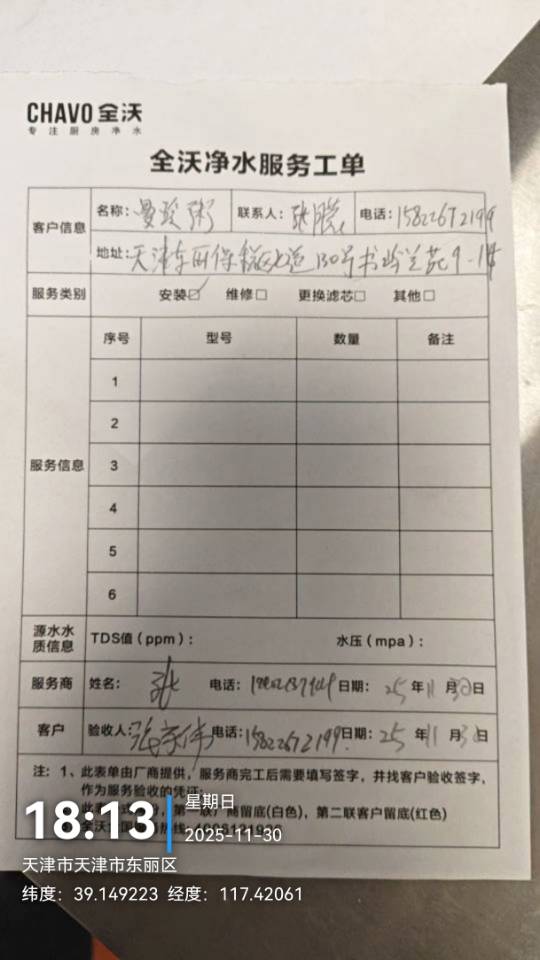 CHAVO 全沃
专注厨房净水
全沃净水服务工单
客户信息 名称: 曼玫粥 联系人: 张 电话: 15822672199
地址: 天津东丽保税区 130号书 兰苑9-1
服务类别 安装☑ 维修□ 更换滤芯□ 其他□
服务信息 序号 型号 数量 备注
1
2
3
4
5
6
源水水质信息 TDS值(ppm): 水压(mpa):
服务商 姓名: 张 电话: 日期: 25年11月30日
客户 验收人: 张 伟 电话: 15822672199 日期: 25年11月30日
注: 1、此表单由厂商提供,服务商完工后需要填写签字,并找客户验收签字,
作为服务验收的凭证;
此表 第一联厂商留底(白色),第二联客户留底(红色)
全沃全国 热线
18:13 星期日
2025-11-30
天津市天津市东丽区
纬度: 39.149223 经度: 117.42061